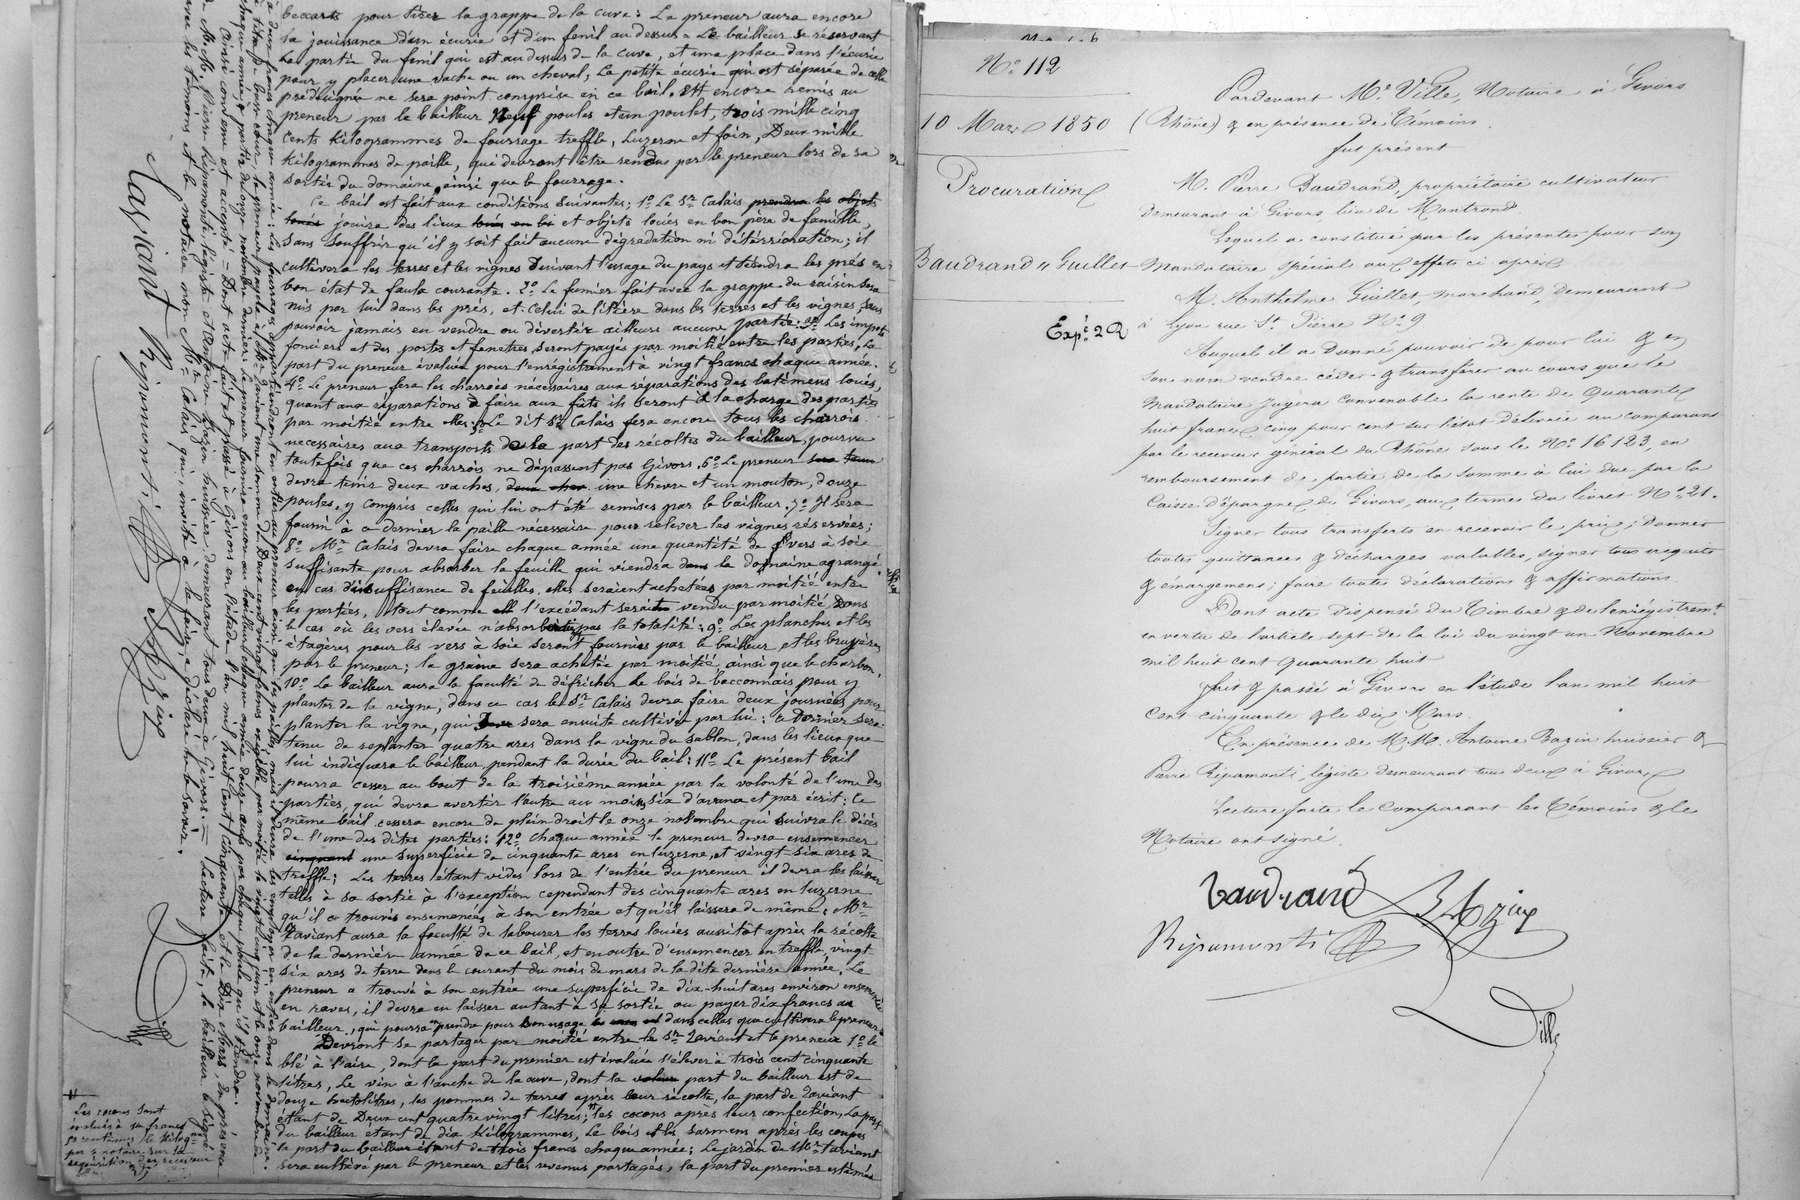 beccarts pour tirer la grappe de la cuve : Le preneur aura encore
la jouissance d'un écurie et d'un fenil au dessus. Le bailleur se réservant
la partie du fenil qui est au dessus de la cuve, et une place dans l'écurie
pour y placer une vache ou un cheval, la petite écurie qui est séparée de celle
prédésignée ne sera point comprise en ce bail. Est encore remis au
preneur par le bailleur Neuf poules et un poulet, trois mille cinq
cents kilogrammes de fourrage treffle, luzerne et foin, Deux mille
kilogrammes de paille, qui devront être rendus par le preneur lors de sa
sortie du domaine, ainsi que le fourrage.
Ce bail est fait aux conditions suivantes ; 1o Le Sr Calais prendra les objets
loués jouira des lieux et objets loués en bon père de famille,
sans souffrir qu'il y soit fait aucune dégradation ni détérrioration ; il
cultivera les terres et les vignes Suivant l'usage du pays et tiendra les prés en
bon état de faulx courante. 2o Le fumier fait avec la grappe du raisin sera
mis par lui dans les prés, et celui de litière dans les terres et les vignes, sans
pouvoir jamais en vendre ou divertir ailleurs aucune partie. 3o Les impots
fonciers et des portes et fenetres seront payés par moitié entre les parties, la
part du preneur évaluée pour l'enregistrement à vingt francs chaque année.
4o Le preneur fera les charrois nécessaires aux réparations des batimens loués,
quant aux réparations à faire aux fûts ils seront à la charge des parties
par moitié entre elles. 5o Le dit Sr Calais fera encore tous les charrois
necessaires aux transports de la part des récoltes du bailleur, pourvu
toutefois que ces charrois ne dépassent pas Givors. 6o Le preneur sera tenu
devra tenir deux vaches, une chevre et un mouton, douze
poules, y compris celles qui lui ont été remises par le bailleur. 7o Il sera
fourni à ce dernier la paille nécessaire pour relever les vignes réservées ;
8o Mr Calais devra faire chaque année une quantité de vers à soie
suffisante pour absorber la feuille qui viendra dans le domaine agrangé,
en cas d'insuffisance de feuilles, elles seraient achetées par moitié entre
les parties, tout comme l'excédent serait vendu par moitié, dans
le cas où les vers élevée n'absorberaient pas la totalité : 9o Les planches et les
étagères pour les vers à soie seront fournies par le bailleur et les bruyères
par le preneur ; la graine sera achetée par moitié ainsi que le charbon,
10o Le bailleur aura la faculté de défricher le bois de bacconnais pour y
planter de la vigne, dans ce cas le Sr Calais devra faire deux journées pour
planter la vigne, qui sera ensuite cultivée par lui : ce dernier sera
tenu de replanter quatre ares dans la vigne du sablon, dans les lieux que
lui indiquera le bailleur pendant la durée du bail : 11o Le présent bail
pourra cesser au bout de la troisième année par la volonté de l'une des
parties, qui devra avertir l'autre au moins six d'avance et par écrit ; Le
même bail cessera encore de plein droit le onze novembre qui suivra le décès
de l'une des dites parties : 12o Chaque année le preneur devra ensemencer
cinquant une superficie de cinquante ares en luzerne, et vingt-six ares de
treffle ; Les terres étant vides lors de l'entrée du preneur il devra les laisser
telles à sa sortie à l'exception cependant des cinquante ares en luzerne
qu'il a trouvés ensemencés à son entrée et qu'il laissera de même. Mr
Laviant aura la faculté de labourer les terres louées aussitôt après la récolte
de la dernière année de ce bail, et en outre d'ensemencer en treffle, vingt
six ares de terre dans le courant du mois de mars de la dite dernière année. Le
preneur a trouvé à son entrée une superficie de dix huit ares environ ensemencée
en raves, il devra en laisser autant à sa sortie ou payer dix francs au
bailleur, qui pourra prendre pour son usage dans celles que cultivera le preneur.
Devront se partager par moitié entre le Sr Laviant et le preneur 1o le
blé à l'aire, dont la part du premier est évaluée s'élever à trois cent cinquante
litres, Le vin à l'anche de la cuve, dont la valeur part du bailleur est de
douze hectolitres, les pommes de terres après leur récolte, la part de Laviant
étant de Deux cent quatre vingt litres ; les cocons après leur confection, la part
du bailleur étant de dix kilogrammes, Le bois et les sarmens après les coupes
la part du bailleur étant de trois francs chaque année ; Le jardin de Mr Laviant
sera cultivé par le preneur et les revenus partagés, la part du premier estimée
à deux francs chaque année ; Les fourrages appartiendront en entier au preneur ainsi que les pailles, mais il devra les employer en entier dans le domaine.
Ainsi convenu et accepté = Dont acte fait et passé à Givors en l'étude l'an mil huit cent cinquante et le Dix Mars En présence
de M.M. Pierre Ripamonti légiste et Antoine Bazin huissier demeurant tous deux à Givors. = Lecture faite, le bailleur a signé
avec les témoins et le notaire non Mr Calais qui, invité à le faire, a déclaré ne le savoir.
Laviant Ripamonti Bazin
Ville
Les cocons sont
évalués à un franc
50 centimes le kilog.
par le notaire sur la
requisition du receveur
No 112
10 Mars 1850
Procuration
Baudrand à Guillet
Expé. 2 R
Pardevant Me Ville, Notaire à Givors
(Rhône) & en présence de Témoins.
fut présent
M. Pierre Baudrand, propriétaire cultivateur
demeurant à Givors, lieu de Montrond
Lequel a constitué par les présentes pour son
Mandataire spécial aux effets ci après
M. Anthelme Guillet, marchand, demeurant
à Lyon rue St. Pierre No 9
Auquel il a Donné pouvoir de pour lui & en
son nom vendre céder & transférer au cours que le
Mandataire Jugera convenable la rente de Quarante
huit francs cinq pour cent sur l'état délivrée au comparant
par le receveur général du Rhône sous le No 16123, en
remboursement de partie de la somme à lui due par la
Caisse d'épargne de Givors, aux termes du livret No 21.
Signer tous transferts en recevoir le prix ; Donner
toutes quittances & décharges valables, signer tous acquits
& émargemens ; faire toutes déclarations & affirmations.
Dont acte dispensé du Timbre & de l'enrégistremt
en vertu de l'article sept de la loi du vingt un Novembre
mil huit cent quarante huit
Fait & passé à Givors en l'étude l'an mil huit
cent cinquante & le dix Mars.
En présence de M.M. Antoine Bazin huissier &
Pierre Ripamonti, légiste demeurant tous deux à Givors
Lecture faite le Comparant les Témoins & le
Notaire ont signé
Baudrand Bazin
Ripamonti
Ville